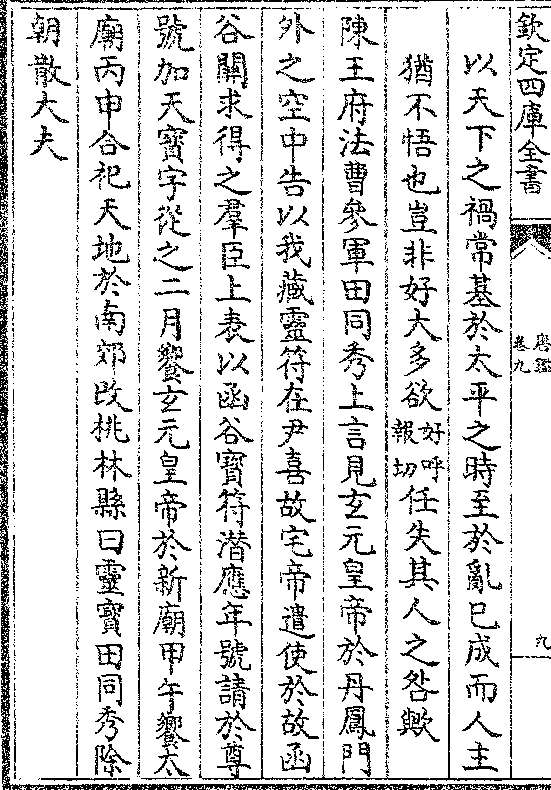 欽定四庫全書
唐鑑
卷九
九
以天下之禍常基於太平之時至於亂已成而人主
猶不悟也豈非好大多欲好呼報切任失其人之咎歟
陳王府法曹參軍田同秀上言見玄元皇帝於丹鳳門
外之空中告以我藏靈符在尹喜故宅帝遣使於故函
谷關求得之羣臣上表以函谷寳符潛應年號請於尊
號加天寳字從之二月饗玄元皇帝於新廟甲午饗太
廟丙申合祀天地於南郊改桃林縣曰靈寳田同秀除
朝散大夫